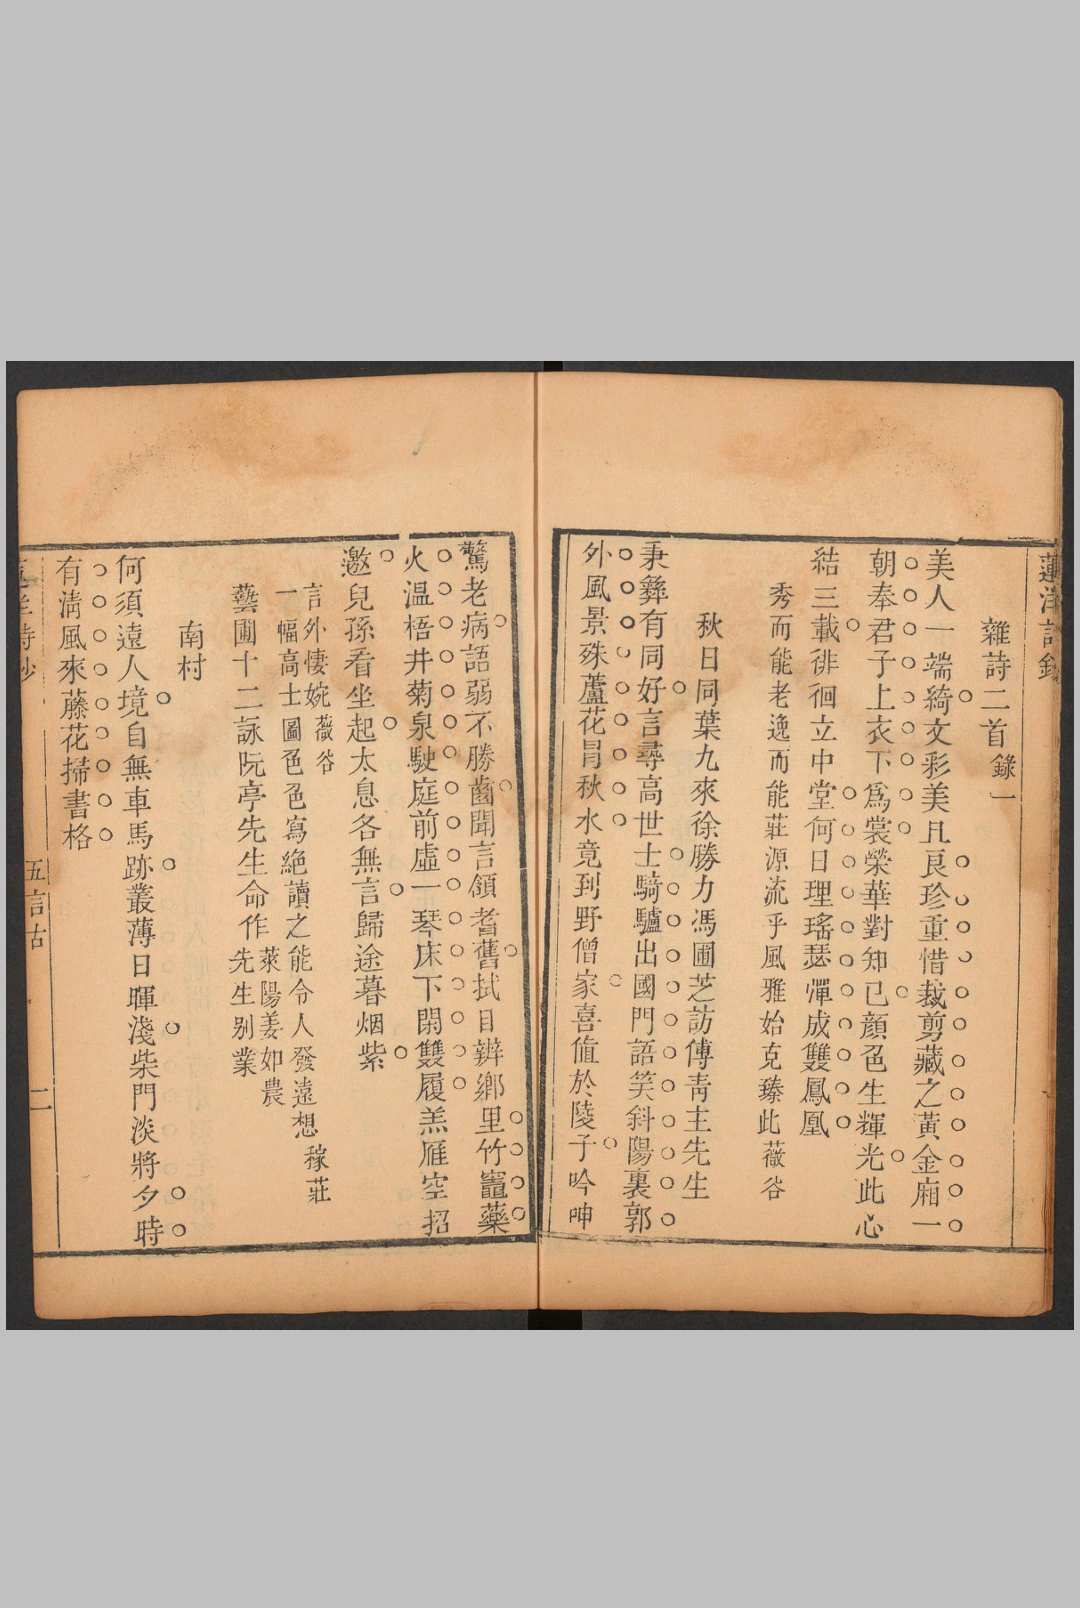 雜詩二首錄一
美人一端綺文彩美且良珍重惜裁剪藏之黃金廂一
朝奉君子上衣下爲裳榮華對知已顏色生輝光此心
結三載徘徊立中堂何日理瑤瑟憚成雙鳳凰
秀而能老逸而能莊源流乎風雅始克臻此薇谷
秋日同葉九來徐勝力馮圃芝訪傅靑主先生
秉彝有同好言尋高世士騎驢出國門語笑斜陽裏郭
外風景殊蘆花冐秋水竟到野僧家喜值於陵子吟呻
驚老病語弱不勝齒聞言頷耆舊拭目辦鄉里竹竈藥
火温梧井菊泉駛庭前虛一琴床下閑雙履羔雁空招
邀兒孫看坐起太息各無言歸途暮烟紫
言外悽婉薇谷
一幅高士圖色色寫絶讀之能令人發遠想稼莊
藝圃十二詠阮亭先生命作萊陽姜如農先生别業
南村
何須遠人境自無車馬跡叢薄日暉淺柴門淡將夕時
有淸風來藤花掃書格
五言古
二